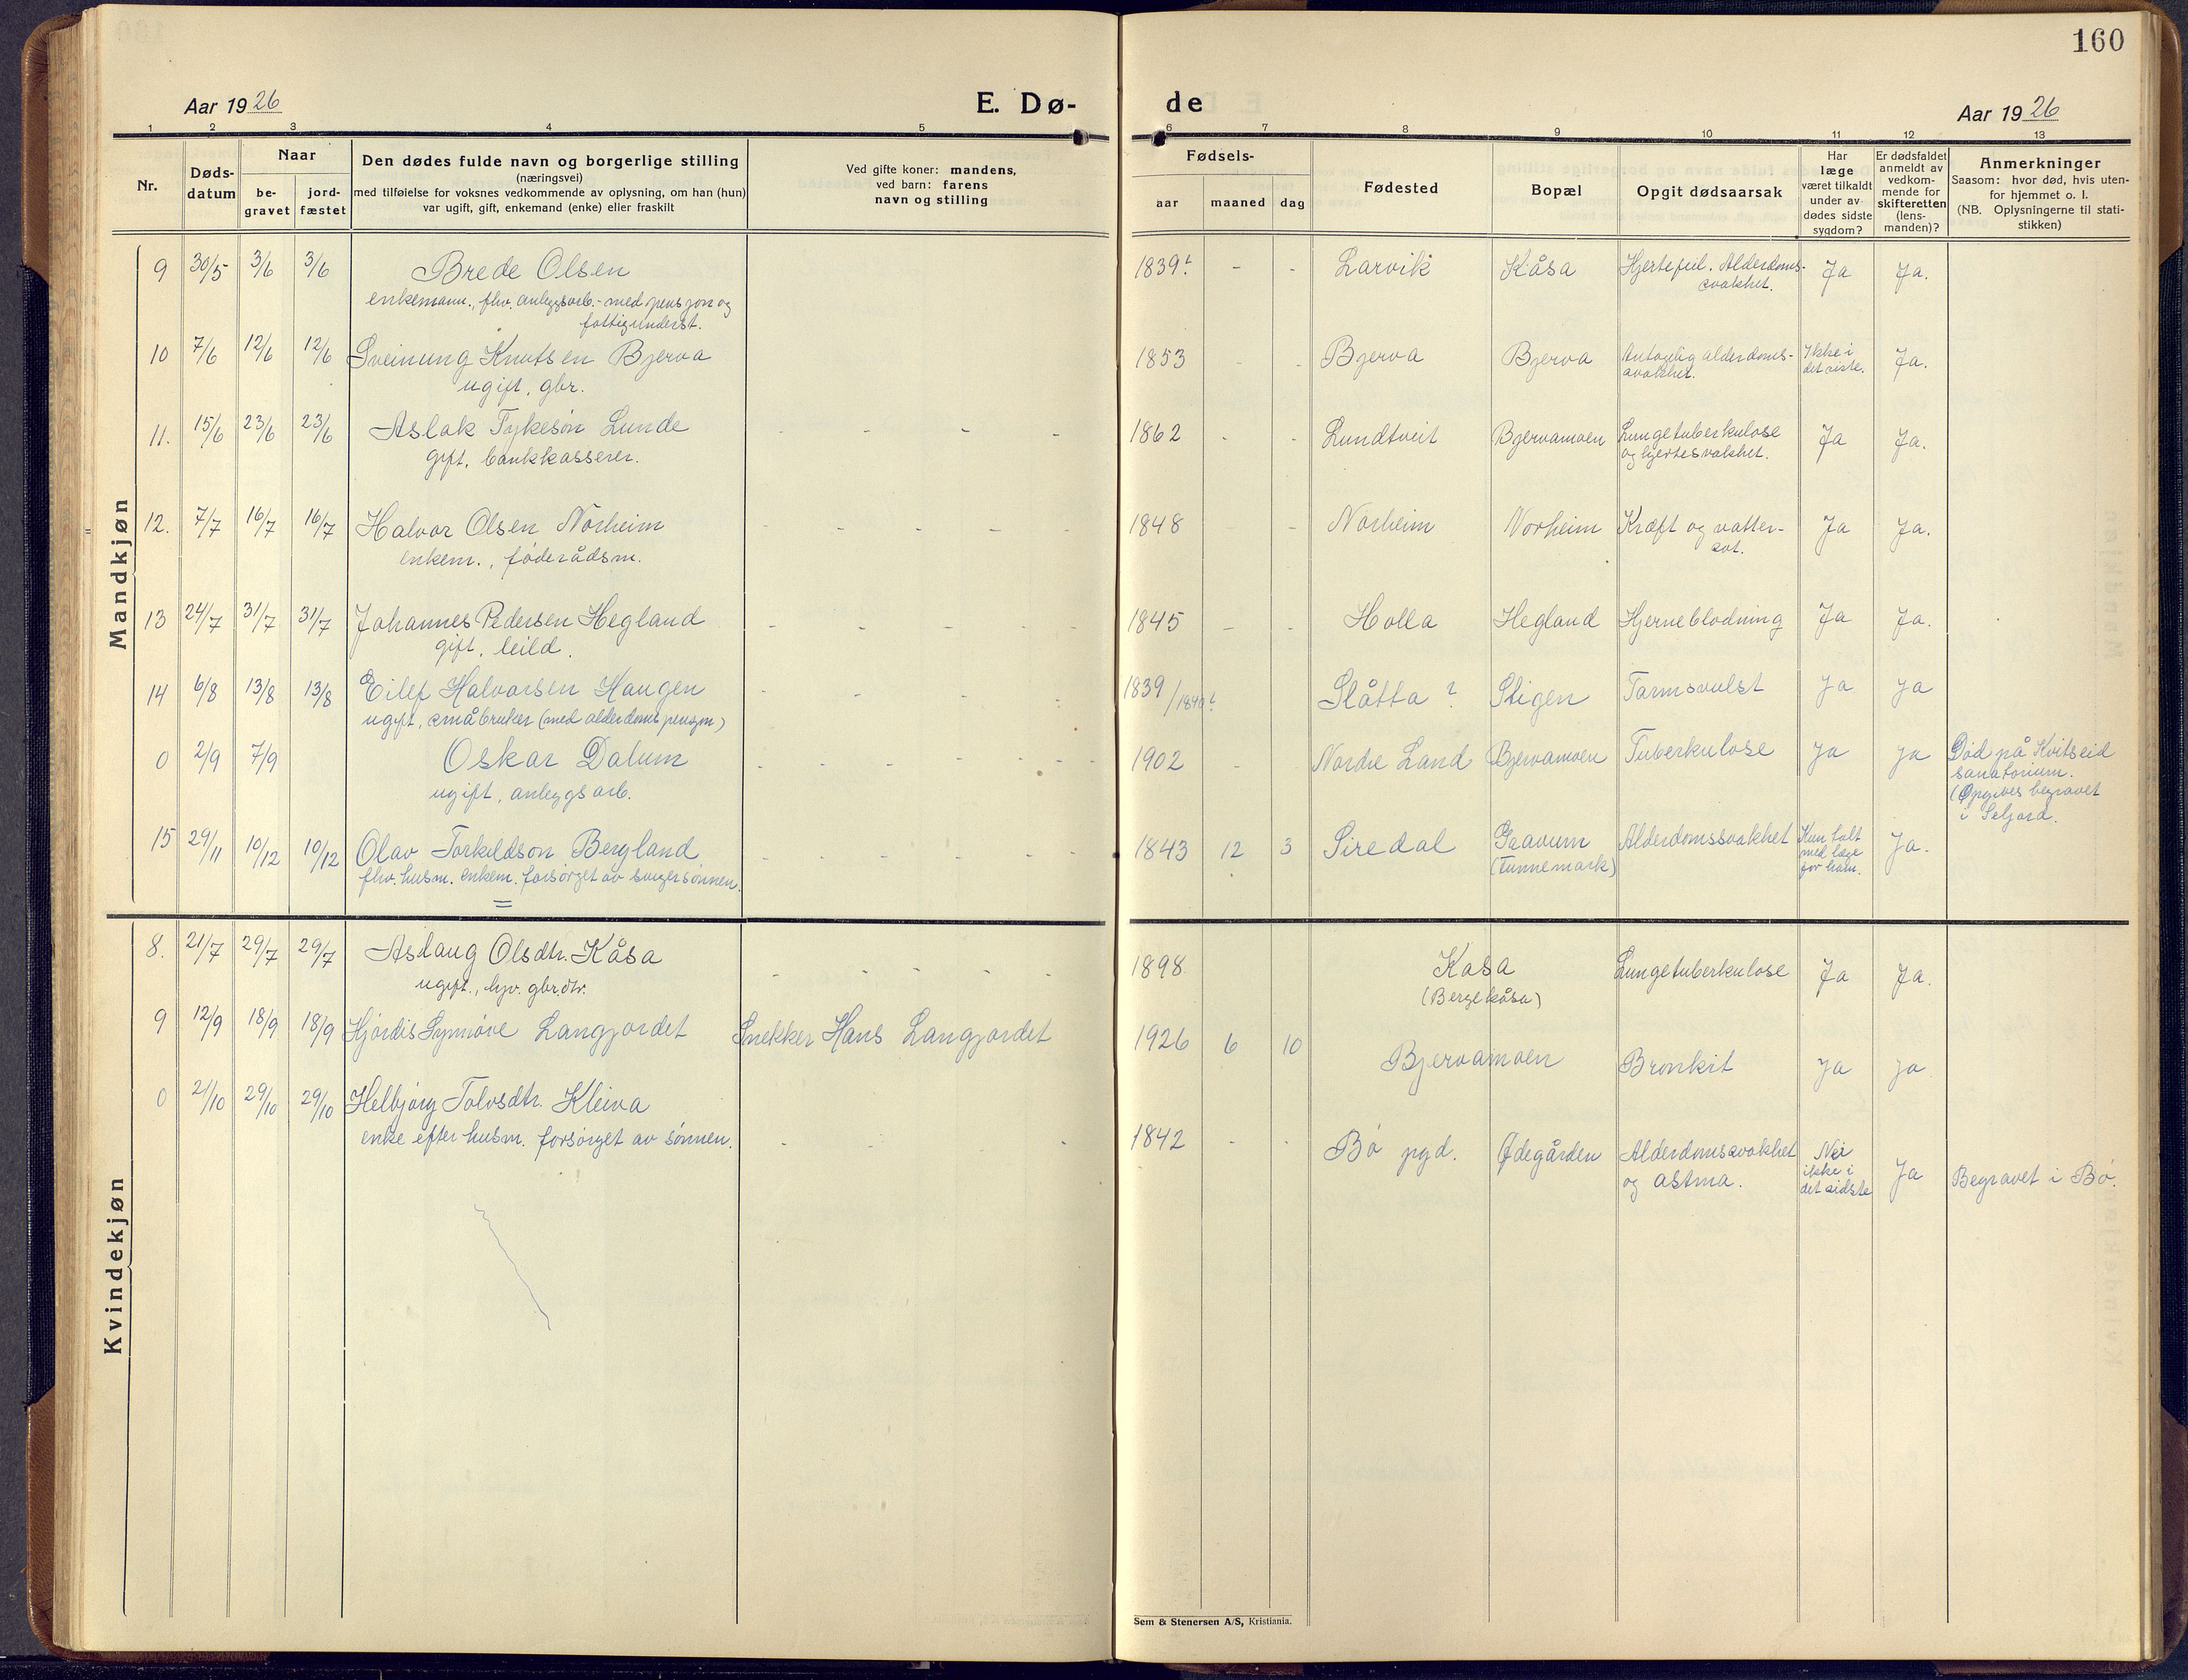 160
Aar 1926 E. Dø- de Aar 1926
1 2 3 4 5 6 7 8 9 10 11 12 13
Nr.
Døds-
datum
Naar
be-
gravet
jord-
fæstet
Den dødes fulde navn og borgerlige stilling
(næringsvei)
med tilføielse for voksnes vedkommende av oplysning, om han (hun)
var ugift, gift, enkemand (enke) eller fraskilt
Ved gifte koner: mandens,
ved barn: farens
navn og stilling
Fødsels-
aar maaned dag
Fødested
Bopæl
Opgit dødsaarsak
Har
læge
været tilkaldt
under av-
dødes sidste
sygdom?
Er dødsfaldet
anmeldt av
vedkom-
mende for
skifteretten
(lens-
manden)?
Anmerkninger
Saasom: hvor død, hvis uten-
for hjemmet o. l.
(NB. Oplysningerne til stati-
stikken)
Mandkjøn
9 30/5 3/6 3/6 Brede Olsen 1839? - - Larvik Kåsa Hjertefeil. Alderdoms- Ja Ja.
enkemann., fhv. anleggsarb. - med pensjon og svakhet.
fattigunderst.
10 7/6 12/6 12/6 Sveinung Knutsen Bjerva 1853 - - Bjerva Bjerva Antagelig alderdoms- Ikke i Ja.
ugift, gbr. svakhet. det siste.
11. 15/6 23/6 23/6 Aslak Tykesøn Lunde - - - - 1862 - - Lundtveit Bjervamoen Lungetuberkulose Ja Ja.
gift, bankkasserer. og hjertesvakhet.
12. 7/7 16/7 16/7 Halvor Olsen Norheim - - - - - 1848 - Norheim Norheim Kræft og vatter- Ja Ja.
enkem., føderådsm. sot.
13 24/7 31/7 31/7 Johannes Pedersen Hegland - - - - - 1845 - - Holla Hegland Hjerneblødning Ja Ja.
gift, leild.
14 6/8 13/8 13/8 Eilef Halvorsen Haugen - - - - 1839/1840? Slåtta ? Stigen Tarmsvulst Ja Ja
ugift, småbruker (med alderdoms pensjon)
0 2/9 7/9 Oskar Dalum - - - - - - 1902 - Nordre Land Bjervamoen Tuberkulose Ja Ja Død på Kvitseid
ugift, anleggsarb. sanatorium.
(Opgives begravet
i Seljord.
15 29/11 10/12 10/12 Olav Torkildson Bergland. - - - - - 1843 12 3 Siredal Gaavum Alderdomssvakhet Kun talt Ja.
fhv. husm. enkem. forsørget av svigersønnen. (Tunnemark) med læge
for ham.
Kvindekjøn
8. 21/7 29/7 29/7 Aslaug Olsdtr. Kåsa - - - - - 1898 Kåsa Lungetuberkulose Ja Ja.
ugift., hjv. gbr.dtr. (Bergekåsa)
9 12/9 18/9 18/9 Hjørdis Synnøve Langjordet Snekker Hans Langjordet 1926 6 10 Bjervamoen Bronkit Ja Ja
0 21/10 29/10 29/10 Helbjørg Tolvsdtr. Kleiva 1842 - - Bø pgd. Ødegården Alderdomssvakhet Nei Ja Begravet i Bø.
enke efter husm. forsørget av sønnen. - - - og astma. ikke i
det sidste
Sem & Stenersen A/S, Kristiania.